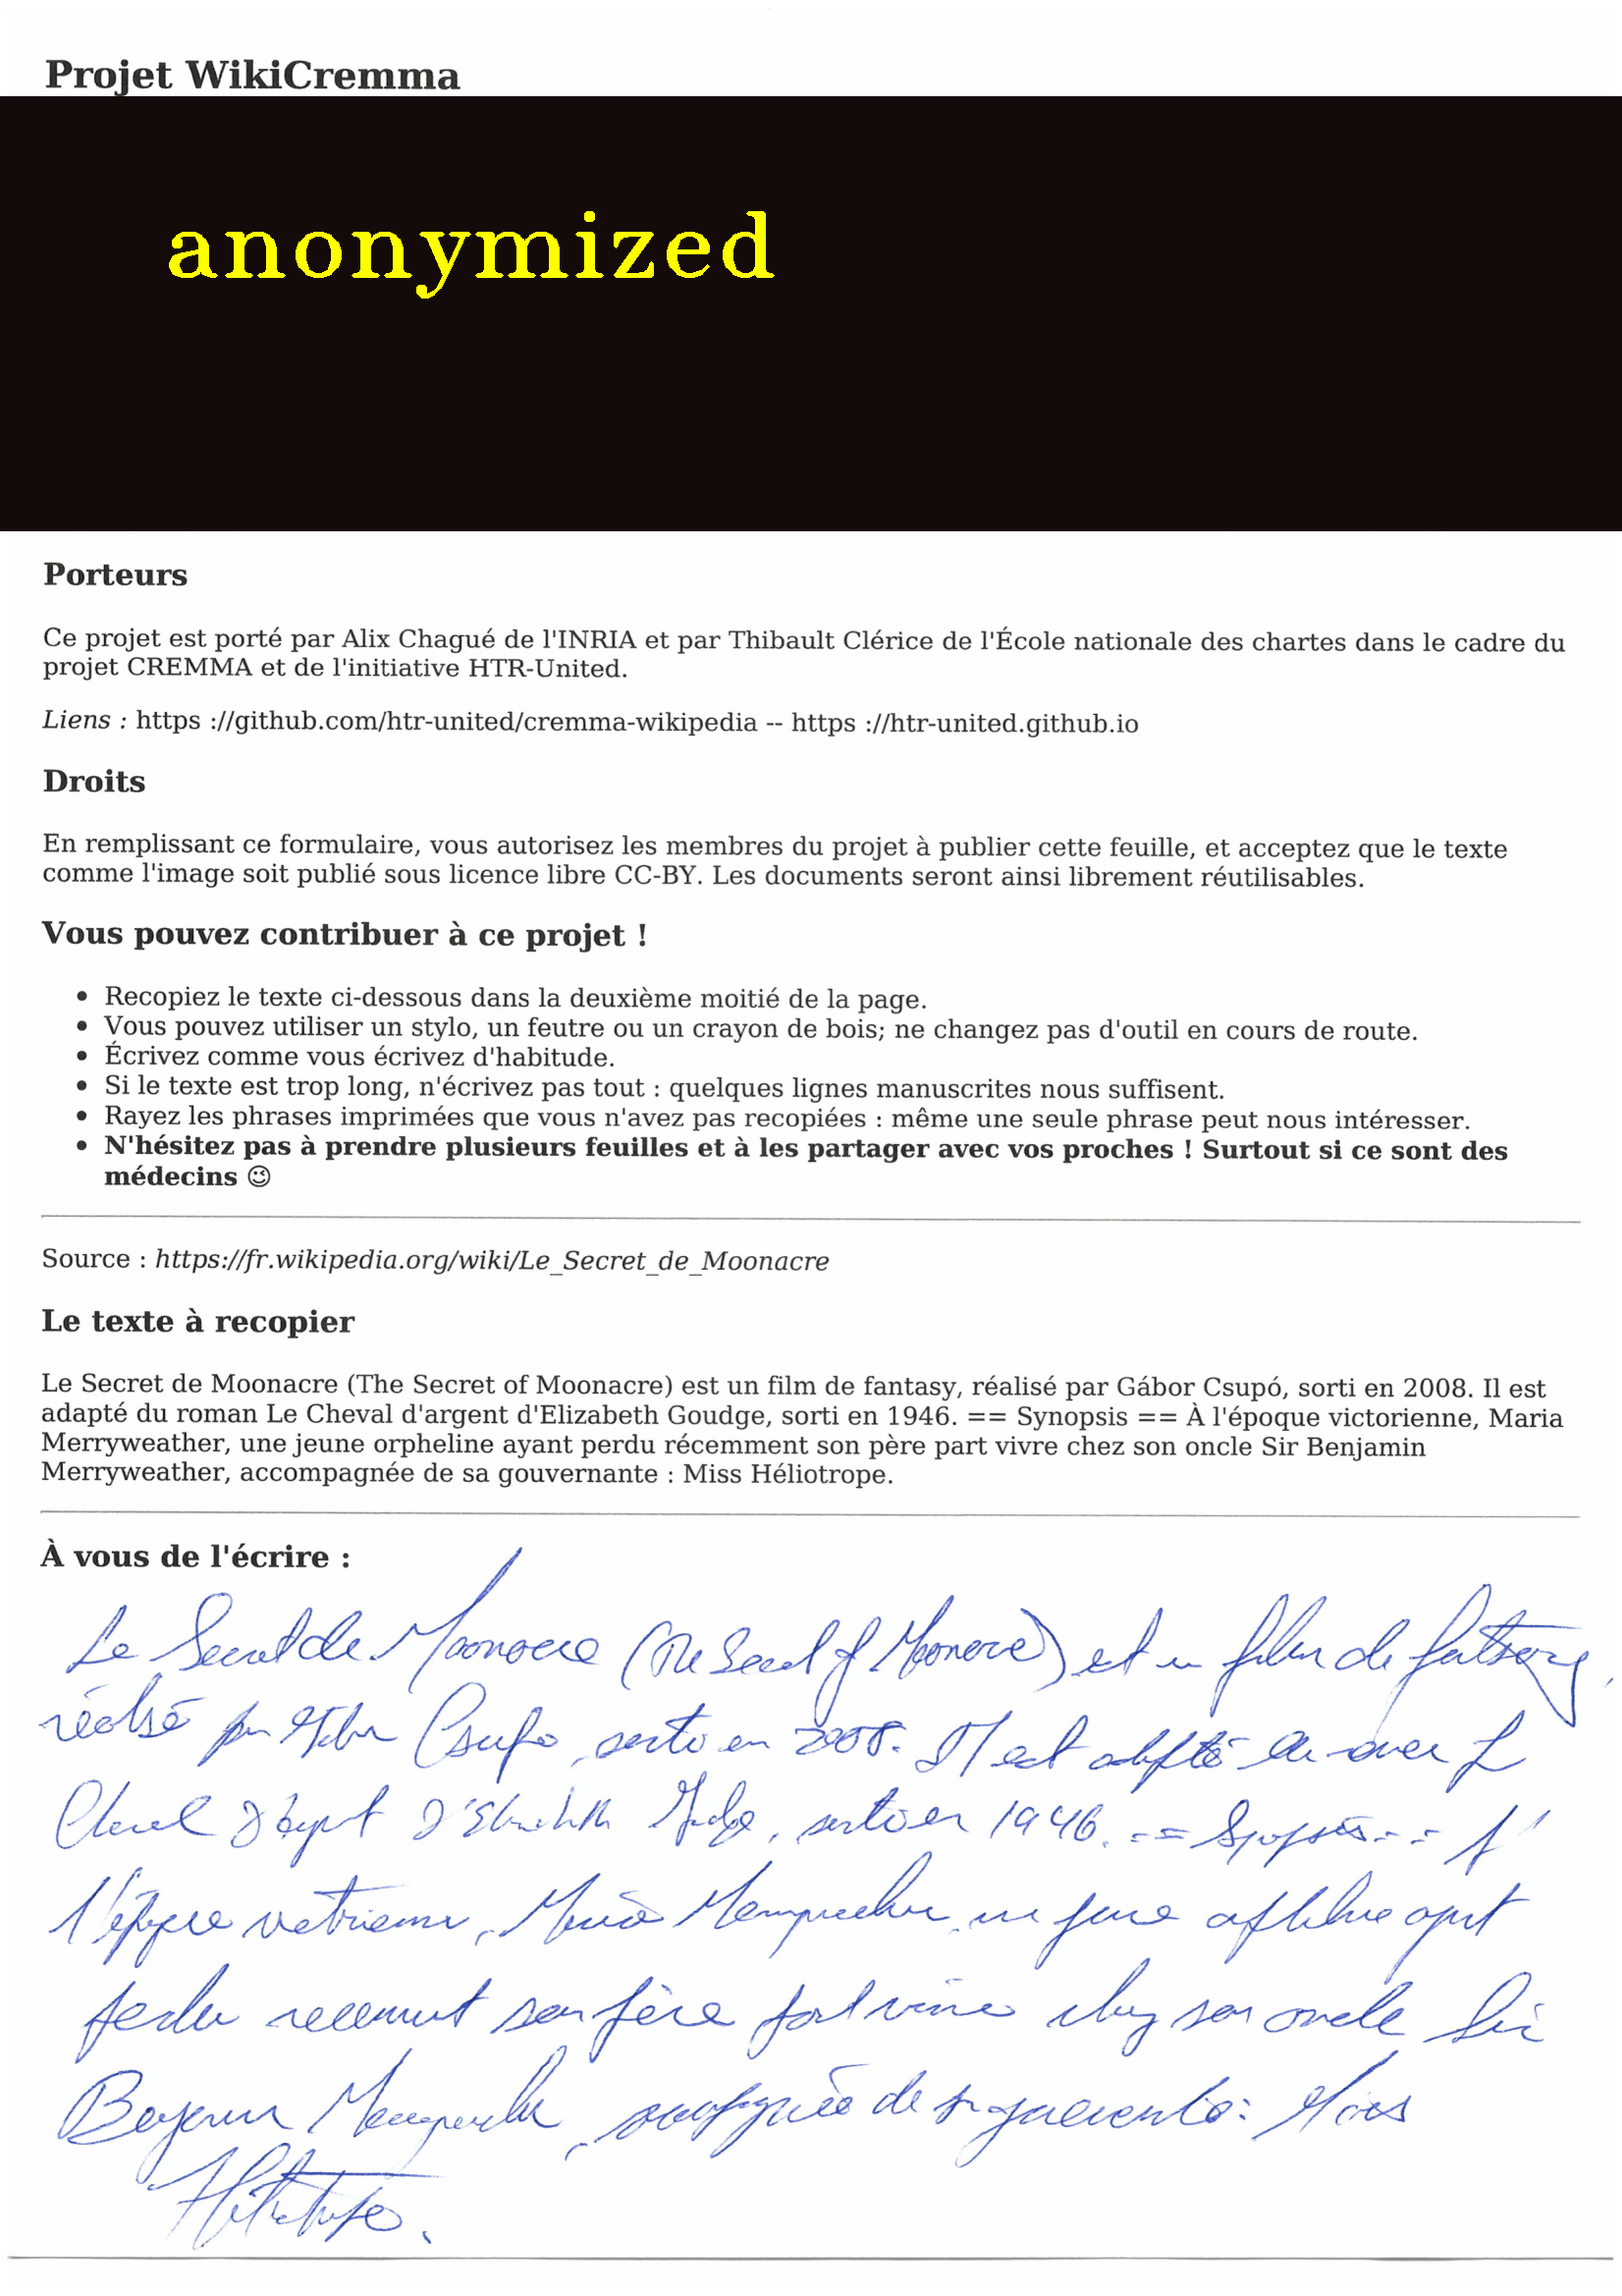 Projet WikiCremma
anonymized
Porteurs
Ce projet est porté par Alix Chagué de l'INRIA et par Thibault Clérice de l'École nationale des chartes dans le cadre du
projet CREMMA et de l'initiative HTR-United.
Liens : https ://github.com/htr-united/cremma-wikipedia -- https ://htr-united.github.io
Droits
En remplissant ce formulaire, vous autorisez les membres du projet à publier cette feuille, et acceptez que le texte
comme l'image soit publié sous licence libre CC-BY. Les documents seront ainsi librement réutilisables.
Vous pouvez contribuer à ce projet !
• Recopiez le texte ci-dessous dans la deuxième moitié de la page.
• Vous pouvez utiliser un stylo, un feutre ou un crayon de bois; ne changez pas d'outil en cours de route.
• Écrivez comme vous écrivez d'habitude.
• Si le texte est trop long, n'écrivez pas tout : quelques lignes manuscrites nous suffisent.
• Rayez les phrases imprimées que vous n'avez pas recopiées : même une seule phrase peut nous intéresser.
• N'hésitez pas à prendre plusieurs feuilles et à les partager avec vos proches ! Surtout si ce sont des
médecins 😉
Source : https://fr.wikipedia.org/wiki/Le_Secret_de_Moonacre
Le texte à recopier
Le Secret de Moonacre (The Secret of Moonacre) est un film de fantasy, réalisé par Gábor Csupó, sorti en 2008. Il est
adapté du roman Le Cheval d'argent d'Elizabeth Goudge, sorti en 1946. == Synopsis == À l'époque victorienne, Maria
Merryweather, une jeune orpheline ayant perdu récemment son père part vivre chez son oncle Sir Benjamin
Merryweather, accompagnée de sa gouvernante : Miss Héliotrope.
À vous de l'écrire :
Le Secret de Moonacre (The Secret of Moonacre) est un film de fantasy,
réalisé par Gabor Csupo, sorti en 2008. Il est adapté du roman Le
Cheval d'argent d'Elizabeth Goudge, sorti en 1946. == Synopsis == A
l'époque victorienne, Maria Merryweather, une jeune orpheline ayant
perdu recemment son père part vivre chez son oncle Sir
Benjamin Merryweather, accompagnée de sa gouvernante : Miss
Héliotrope.